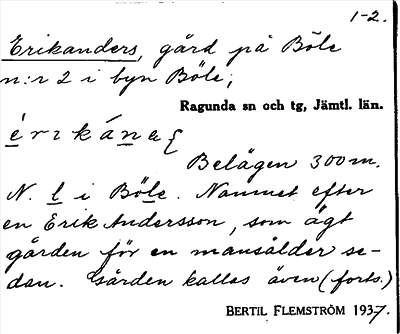 1-2.
Erikanders, gård på Böle
n:r 2 i byn Böle;
Ragunda sn och tg, Jämtl. län.
é r ɪ k á n a {
Belägen 300 m.
N. l i Böle. Namnet efter
en Erik Andersson, som ägt
gården för en mansålder se-
dan. Gården kallas även (forts.)
BERTIL FLEMSTRÖM 1937.